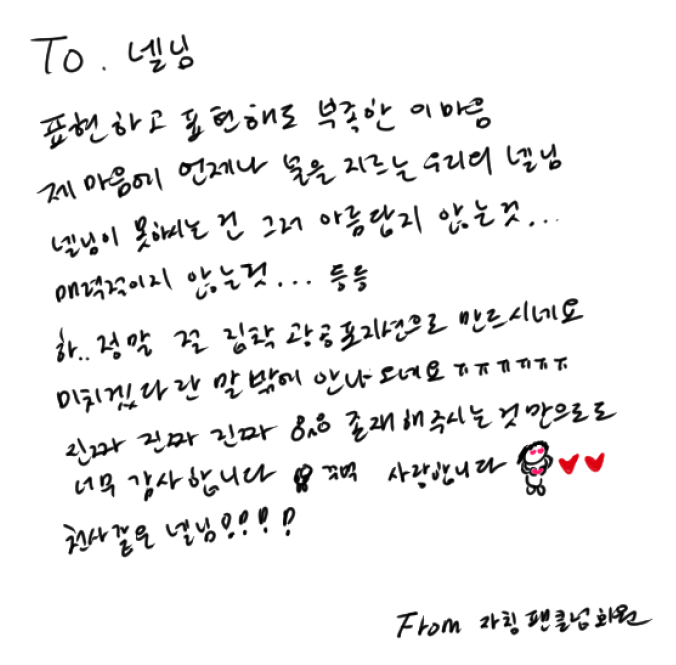 To. 넬님
표현하고 표현해도 부족한 이 마음
제 마음에 언제나 불을 지르는 우리의 넬님
넬님이 못하시는 건 그저 아름답지 않는것...
매력적이지 않는것... 등등
하.. 정말 절 집착 광공포지션으로 만드시네요
미치겠다란 말 밖에 안나오네요 ㅠㅠㅠㅠㅠㅠ
진짜 진짜 진짜 존재해주시는것만으로도
너무 감사합니다 꾸벅 사랑합니다
천사같은 넬님!!!!
From 자칭 팬클럽 회원